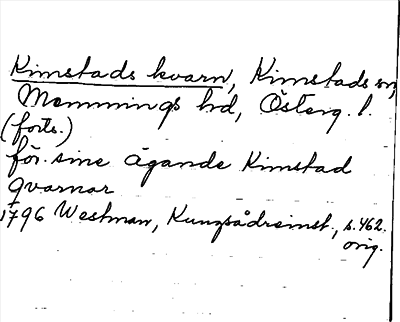 Kimstads kvarn, Kimstads sn,
Memmings hd, Österg. l.
(forts.)
för sine ägande Kimstad
qvarnar
1796 Westman, Kungsådreinst., s. 462.
orig.